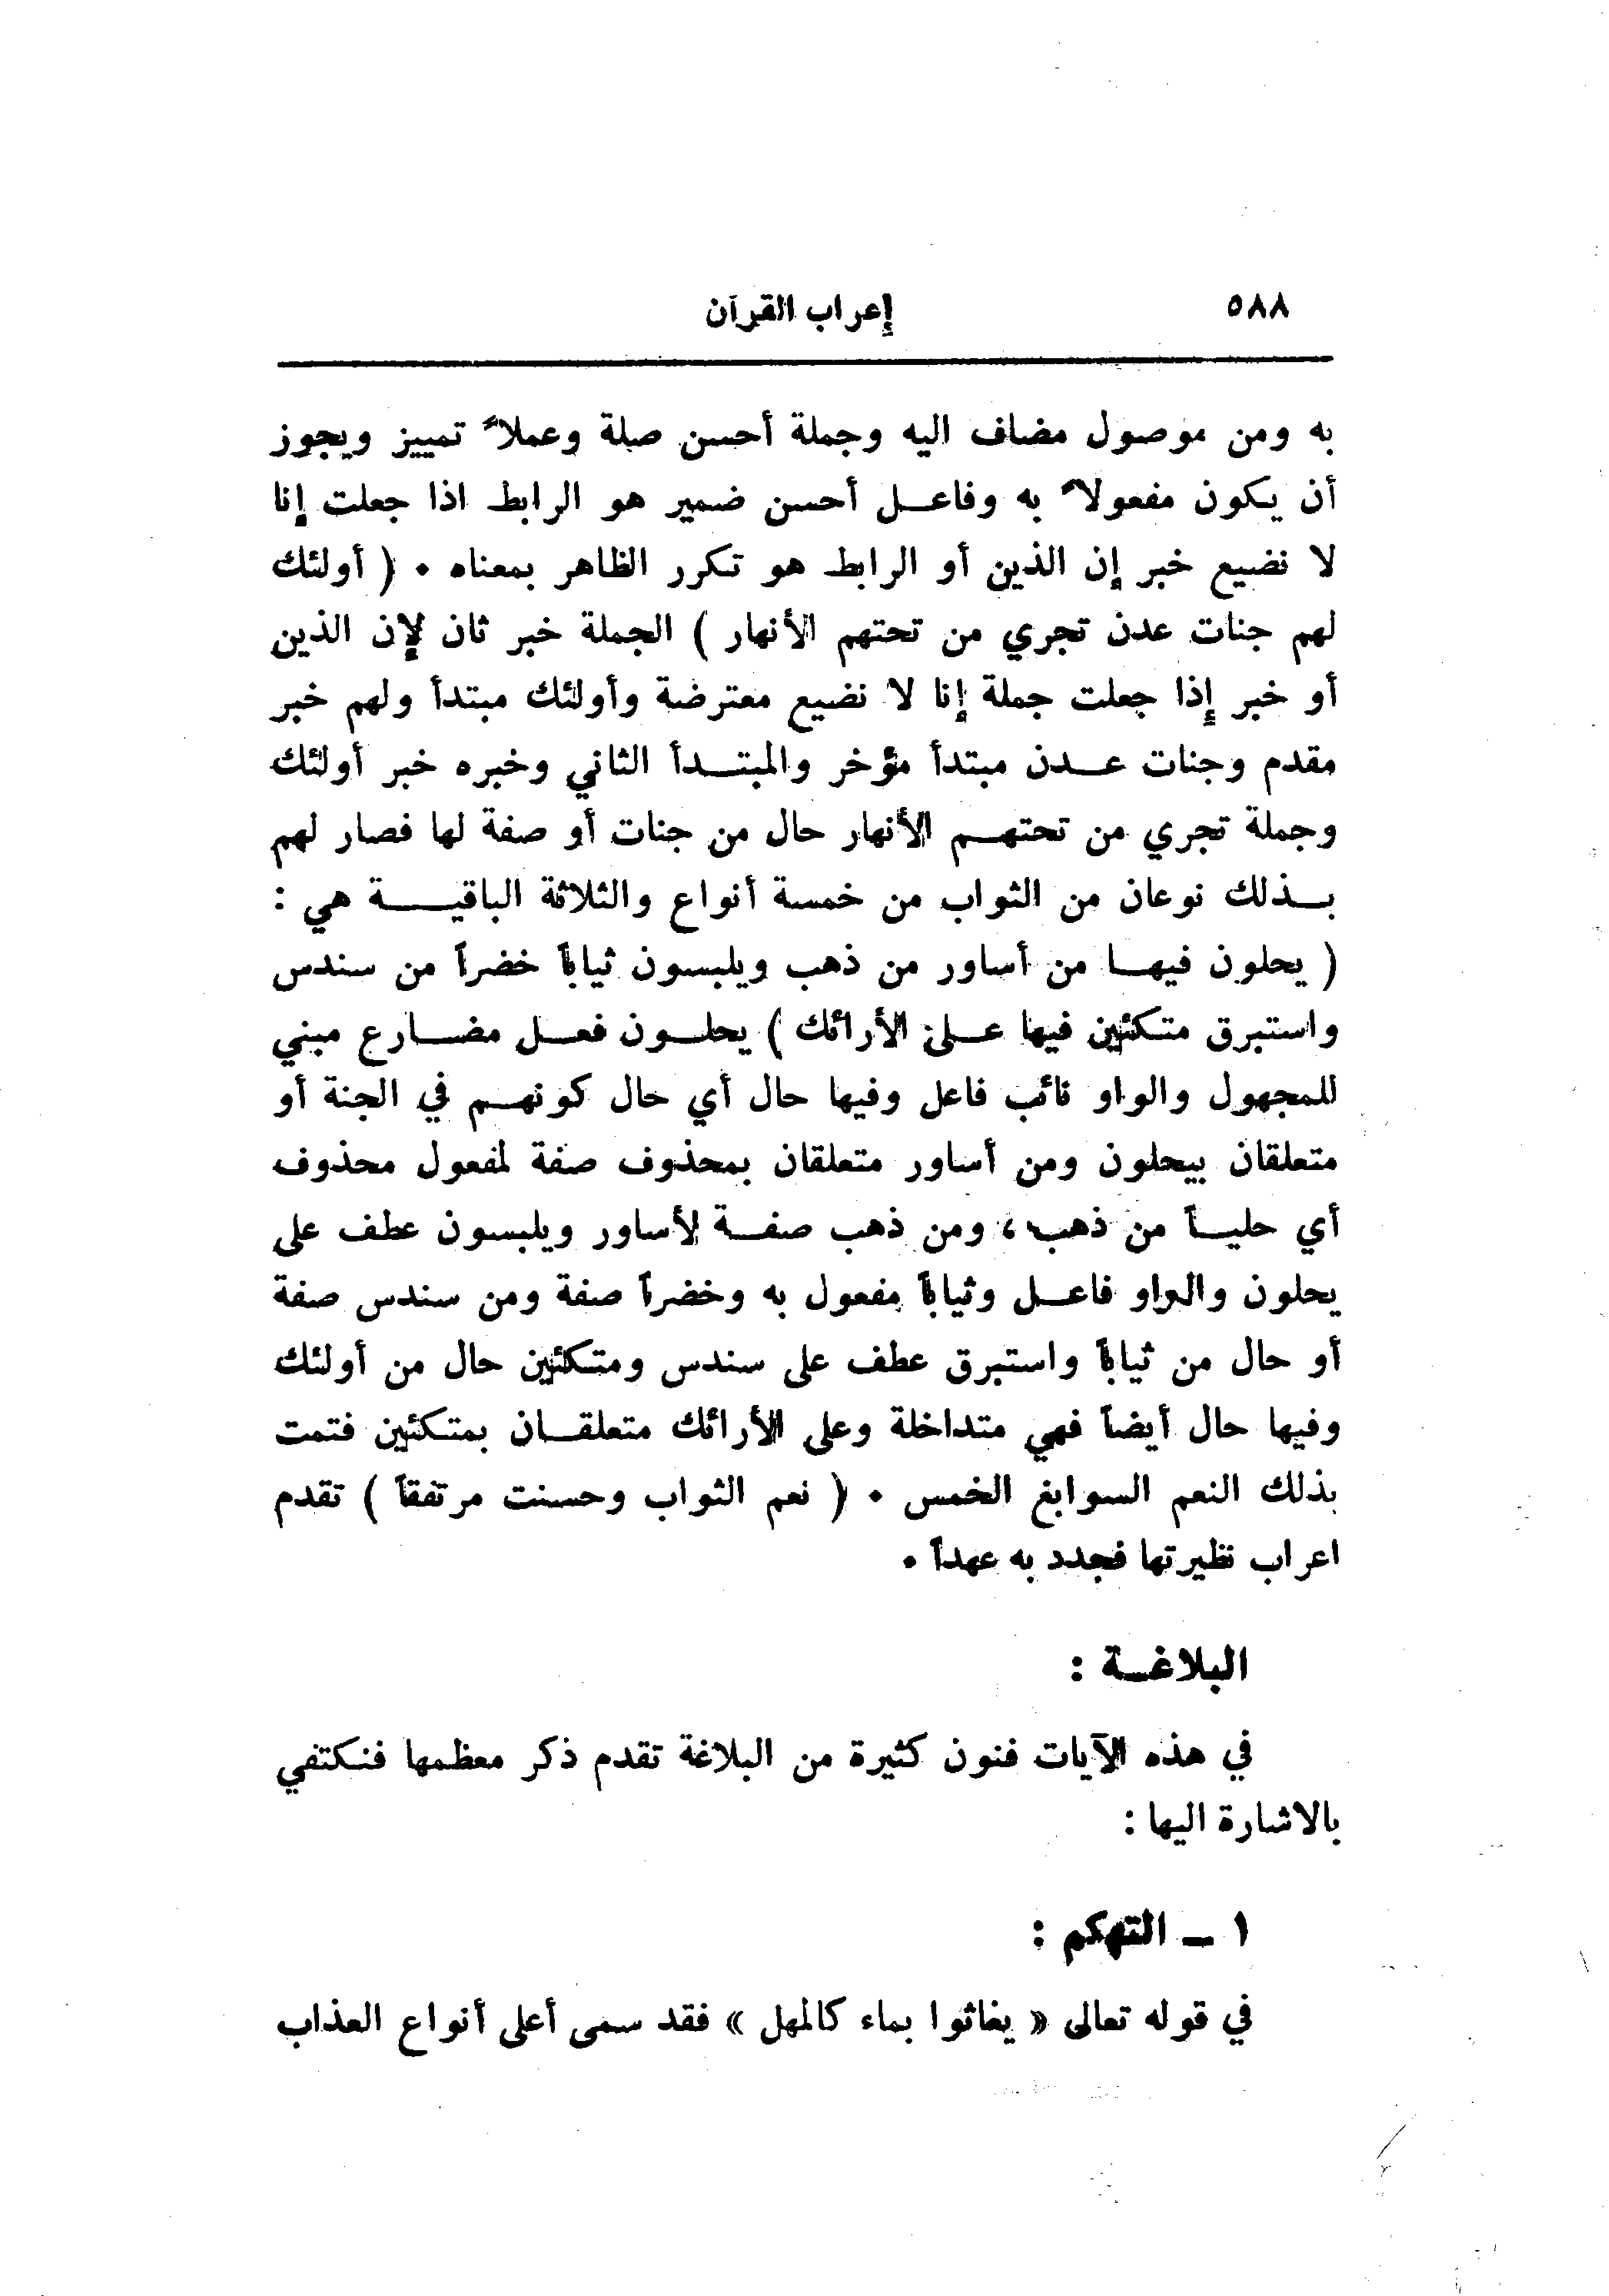 ٥٨٨ إعراب القرآن
به ومن موصول مضاف اليه وجملة أحسن صلة وعملاً تمييز ويجوز
أن يكون مفعولاً به وفاعل أحسن ضمير هو الرابط اذا جعلت إنا
لا نضيع خبر إن الذين أو الرابط هو تكرر الظاهر بمعناه . ( أولئك
لهم جنات عدن تجري من تحتهم الأنهار ) الجملة خبر ثان لإن الذين
أو خبر إذا جعلت جملة إنا لا نضيع معترضة وأولئك مبتدأ ولهم خبر
مقدم وجنات عدن مبتدأ مؤخر والمبتدأ الثاني وخبره خبر أولئك
وجملة تجري من تحتهم الأنهار حال من جنات أو صفة لها فصار لهم
بذلك نوعان من الثواب من خمسة أنواع والثلاثة الباقية هي :
( يحلون فيها من أساور من ذهب ويلبسون ثياباً خضراً من سندس
واستبرق متكئين فيها على الأرائك ) يحلون فعل مضارع مبني
للمجهول والواو نائب فاعل وفيها حال أي حال كونهم في الجنة أو
متعلقان بيحلون ومن أساور متعلقان بمحذوف صفة لمفعول محذوف
أي حلياً من ذهب ، ومن ذهب صفة لأساور ويلبسون عطف على
يحلون والواو فاعل وثياباً مفعول به وخضراً صفة ومن سندس صفة
أو حال من ثياباً واستبرق عطف على سندس ومتكئين حال من أولئك
وفيها حال أيضاً فهي متداخلة وعلى الأرائك متعلقان بمتكئين فتمت
بذلك النعم السوابغ الخمس . ( نعم الثواب وحسنت مرتفقاً ) تقدم
اعراب نظيرتها فجدد به عهداً .
البلاغة :
في هذه الآيات فنون كثيرة من البلاغة تقدم ذكر معظمها فنكتفي
بالاشارة اليها :
١ – التهكم :
في قوله تعالى « يغاثوا بماء كالمهل » فقد سمى أعلى أنواع العذاب